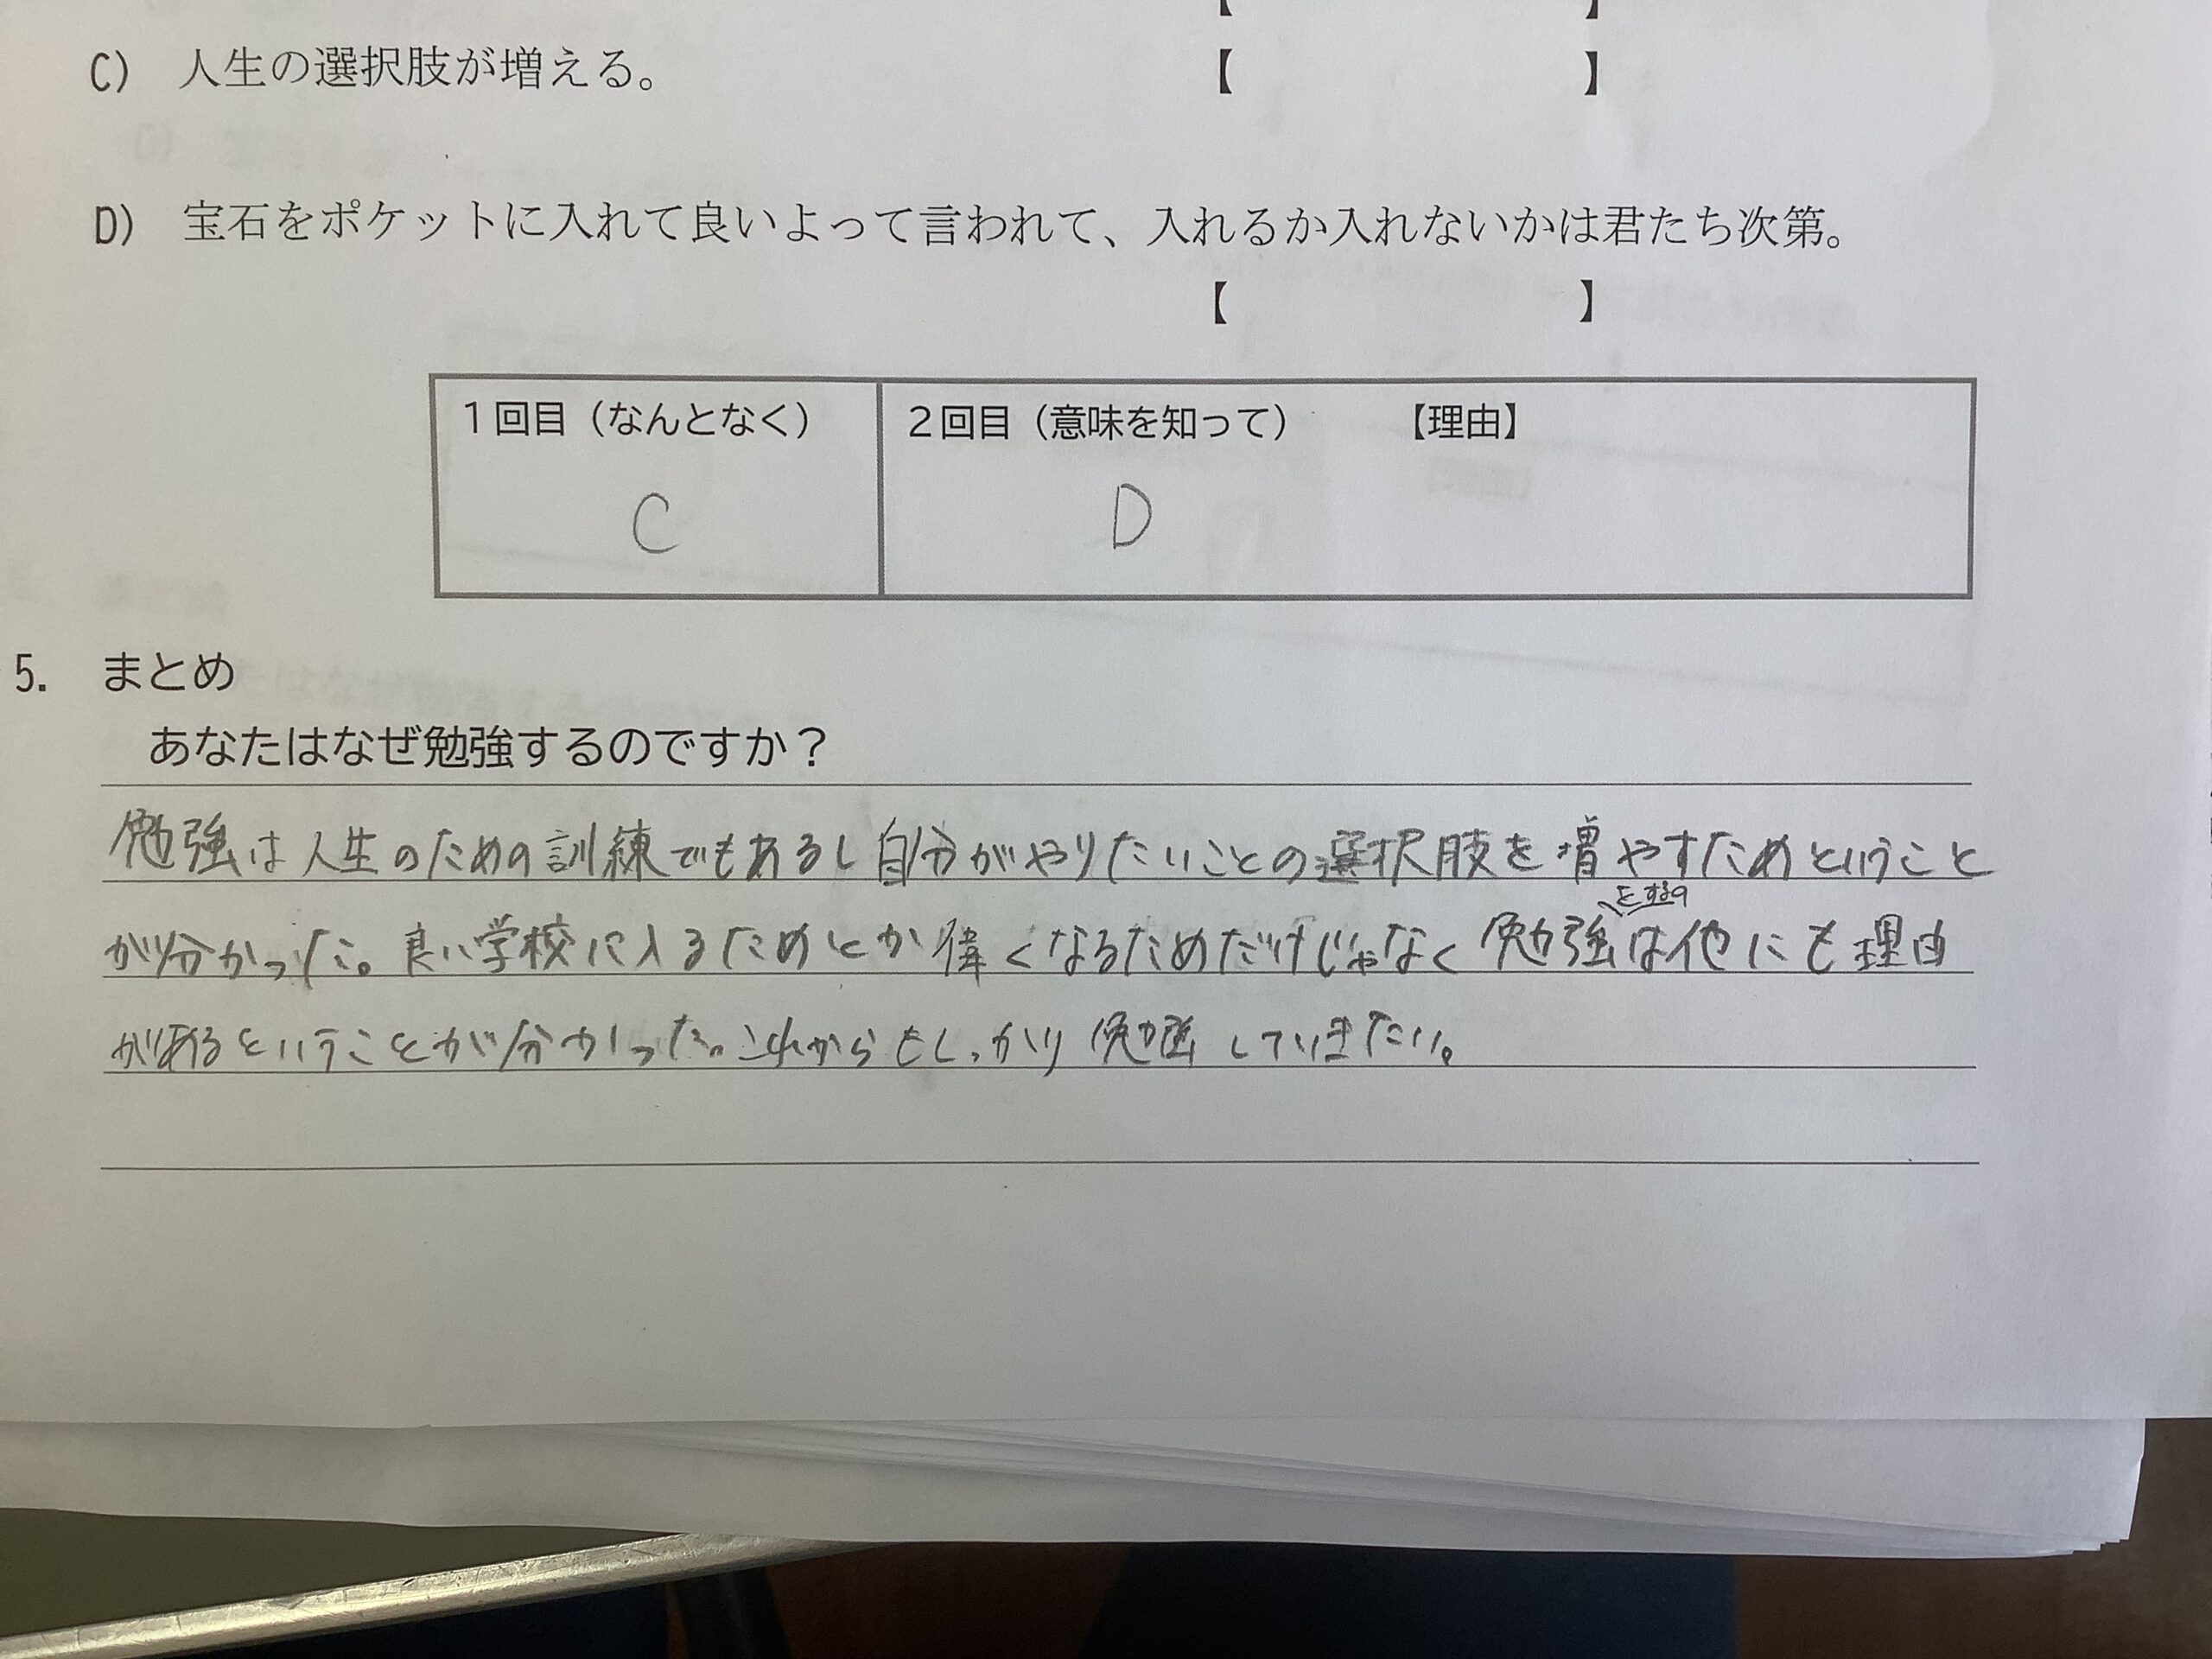 【 】
C) 人生の選択肢が増える。 【 】
D) 宝石をポケットに入れて良いよって言われて、入れるか入れないかは君たち次第。
【 】
1回目（なんとなく） 2回目（意味を知って） 【理由】
C D
5. まとめ
あなたはなぜ勉強するのですか？
勉強は人生のための訓練でもあるし自分がやりたいことの選択肢を増やすためということ
が分かった。良い学校に入るためとか偉くなるためだけじゃなく勉強をするのは他にも理由
があるということが分かった。これからもしっかり勉強していきたい。